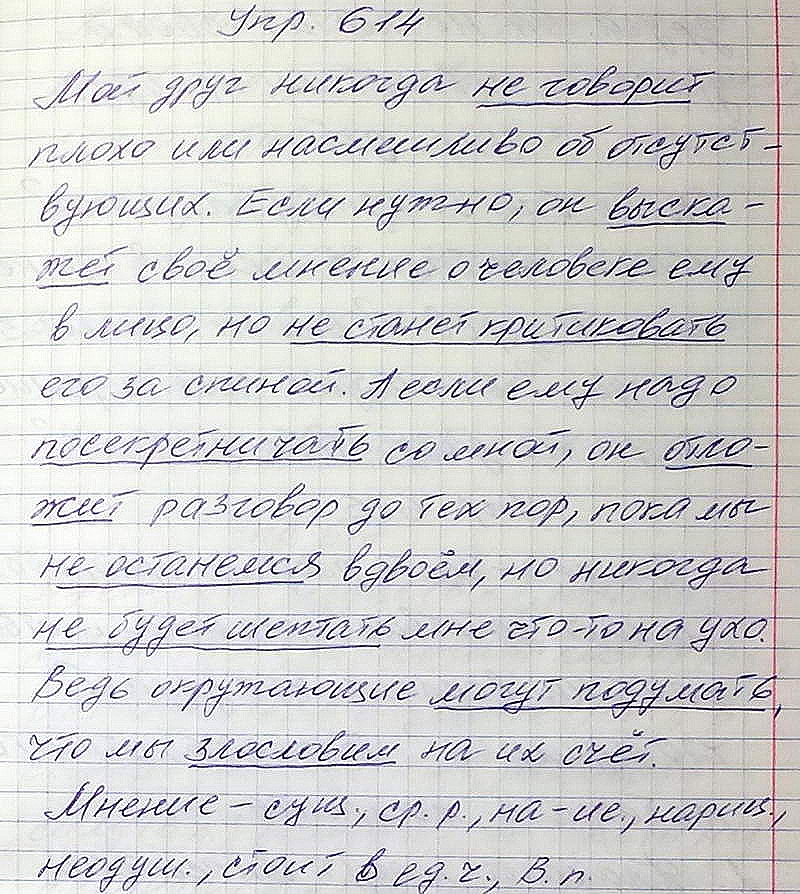 Упр. 614
Мой друг никогда не говорит
плохо или насмешливо об отсутст-
вующих. Если нужно, он выска-
жет своё мнение о человеке ему
в лицо, но не станет критиковать
его за спиной. А если ему надо
посекретничать со мной, он отло-
жит разговор до тех пор, пока мы
не останемся вдвоём, но никогда
не будет шептать мне что-то на ухо.
Ведь окружающие могут подумать,
что мы злословим на их счёт.
Мнение – сущ., ср. р., на -ие., нариц.,
неодуш., стоит в ед. ч., В. п.